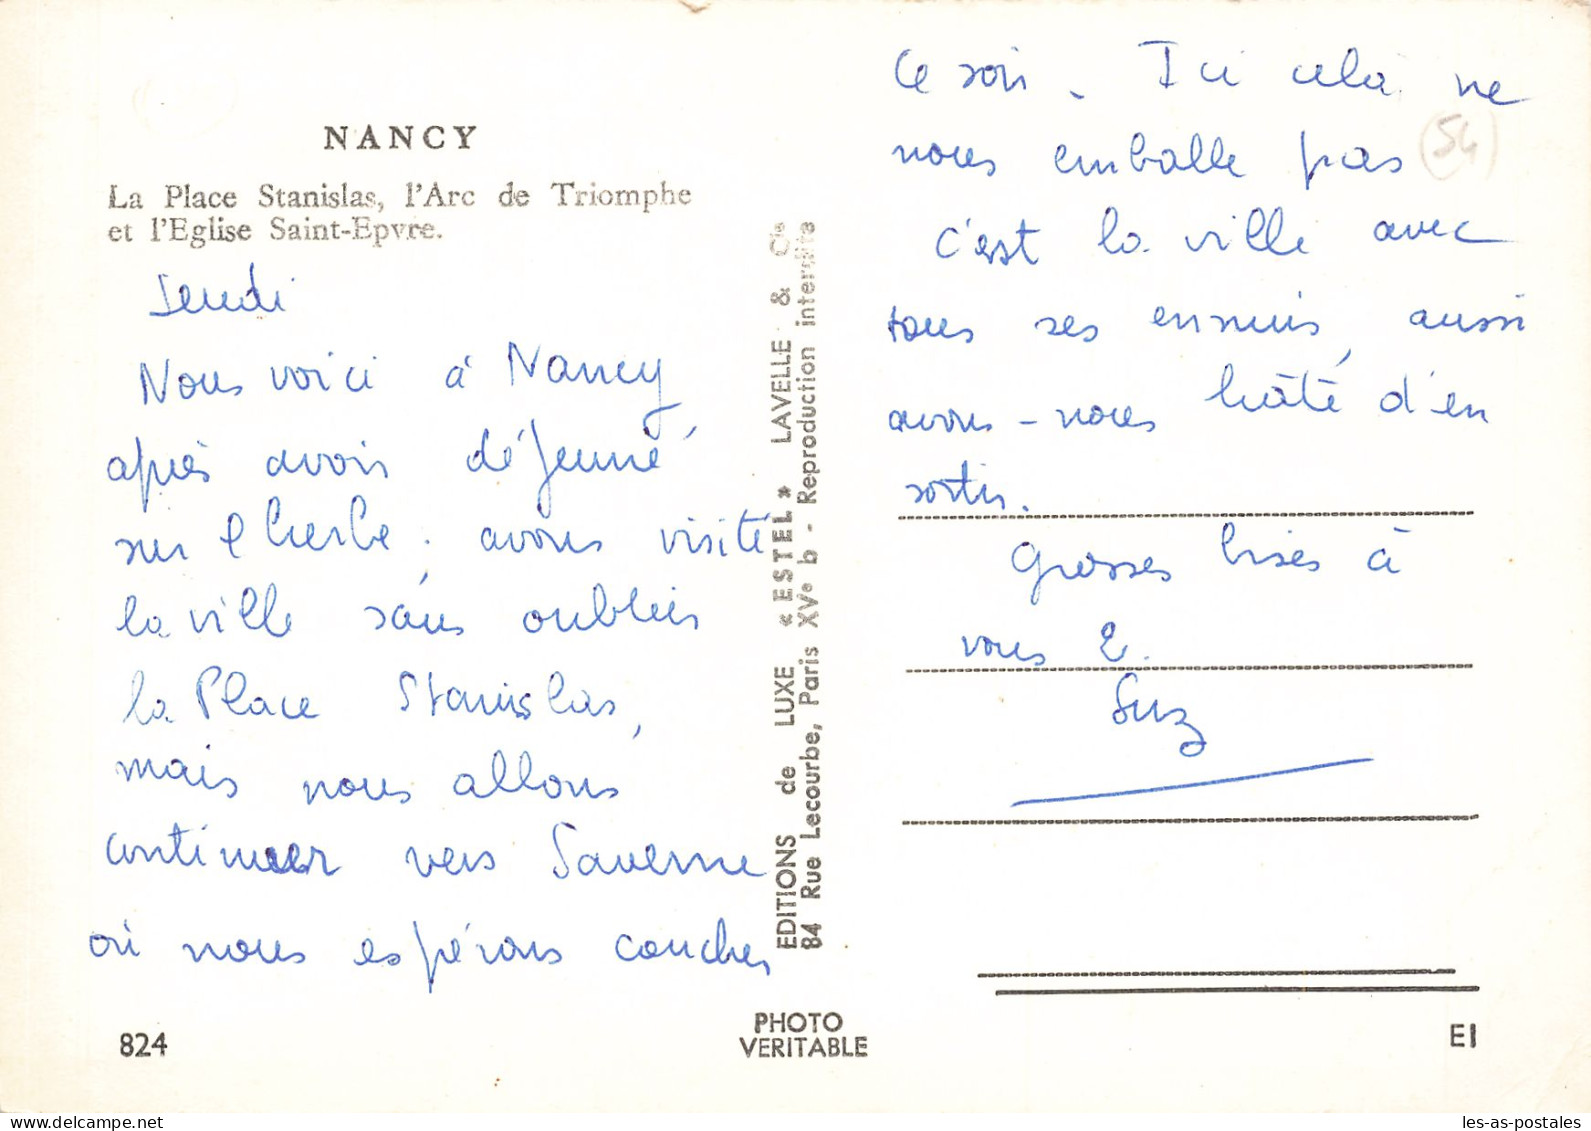 NANCY
La Place Stanislas, l'Arc de Triomphe
et l'Eglise Saint-Epvre.
Jeudi
Nous voici à Nancy
après avoir déjeuné
sur l herbe. avons visité
la ville sans oublier
la Place Stanislas,
mais nous allons
continuer vers Saverne
où nous espérons coucher
824
EDITIONS de LUXE « ESTEL » LAVELLE & Cie
84 Rue Lecourbe, Paris XVe b - Reproduction interdite
PHOTO
VERITABLE
Ce soir. Ici cela ne
nous emballe pas
54
c'est la ville avec
tous ses ennuis, aussi
avons-nous hâté d'en
sortir.
Grosses bises à
vous 2.
Suz
EI
les-as-postales
delcampe.net